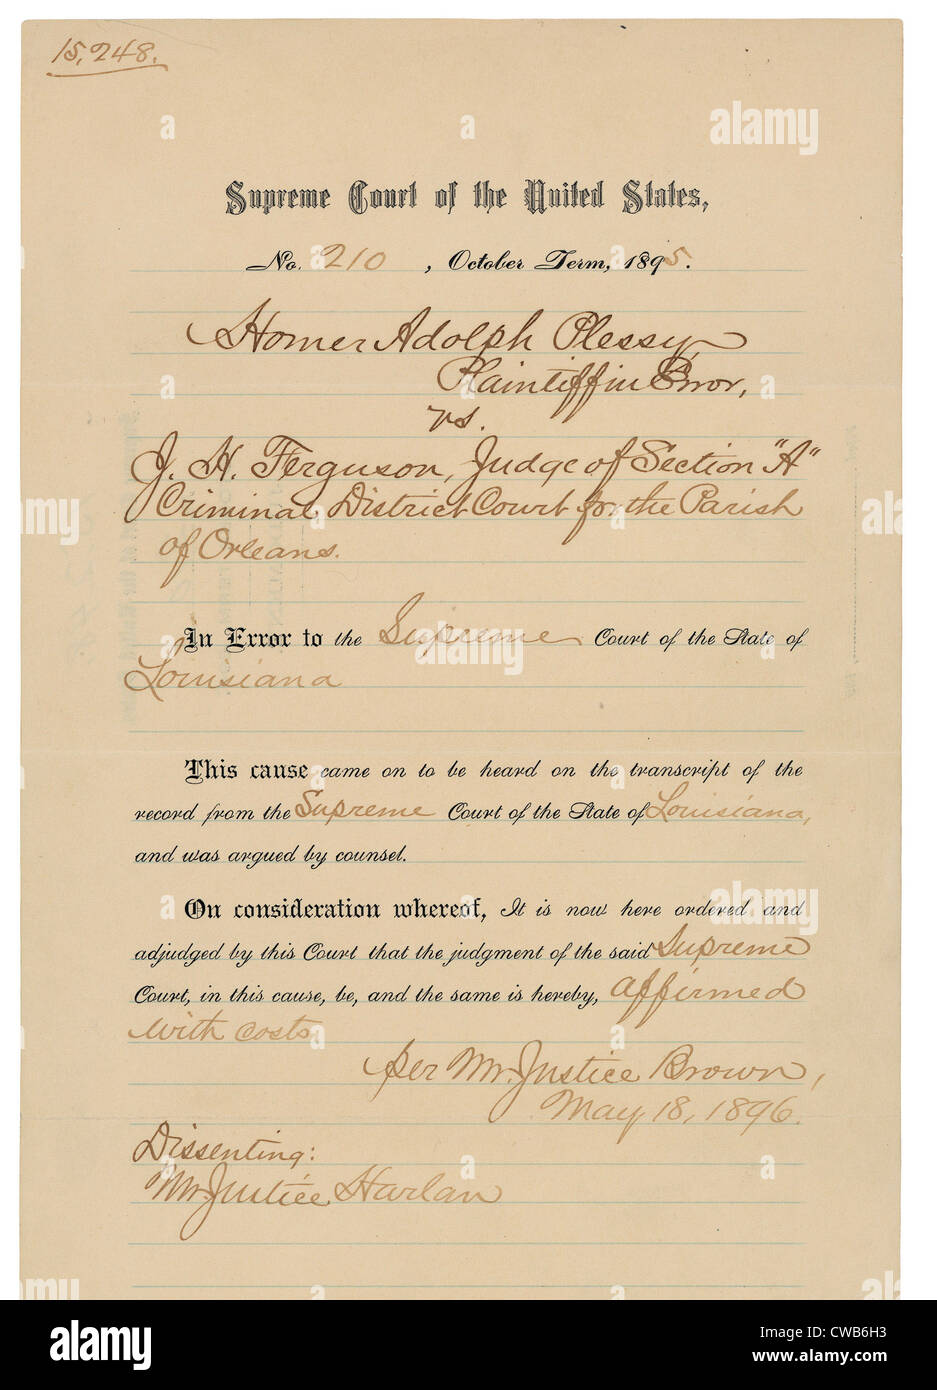 15,248.
Supreme Court of the United States,
No. 210, October Term, 1895.
Homer Adolph Plessy,
Plaintiff in Error,
vs.
J. H. Ferguson, Judge of Section "A"
Criminal District Court for the Parish
of Orleans.
In Error to the Supreme Court of the State of
Louisiana
This cause came on to be heard on the transcript of the
record from the Supreme Court of the State of Louisiana,
and was argued by counsel.
On consideration whereof, It is now here ordered and
adjudged by this Court that the judgment of the said Supreme
Court, in this cause, be, and the same is hereby, affirmed
with costs.
per Mr. Justice Brown,
May 18, 1896.
Dissenting:
Mr. Justice Harlan
alamy
Image ID: CWB6H3
www.alamy.com